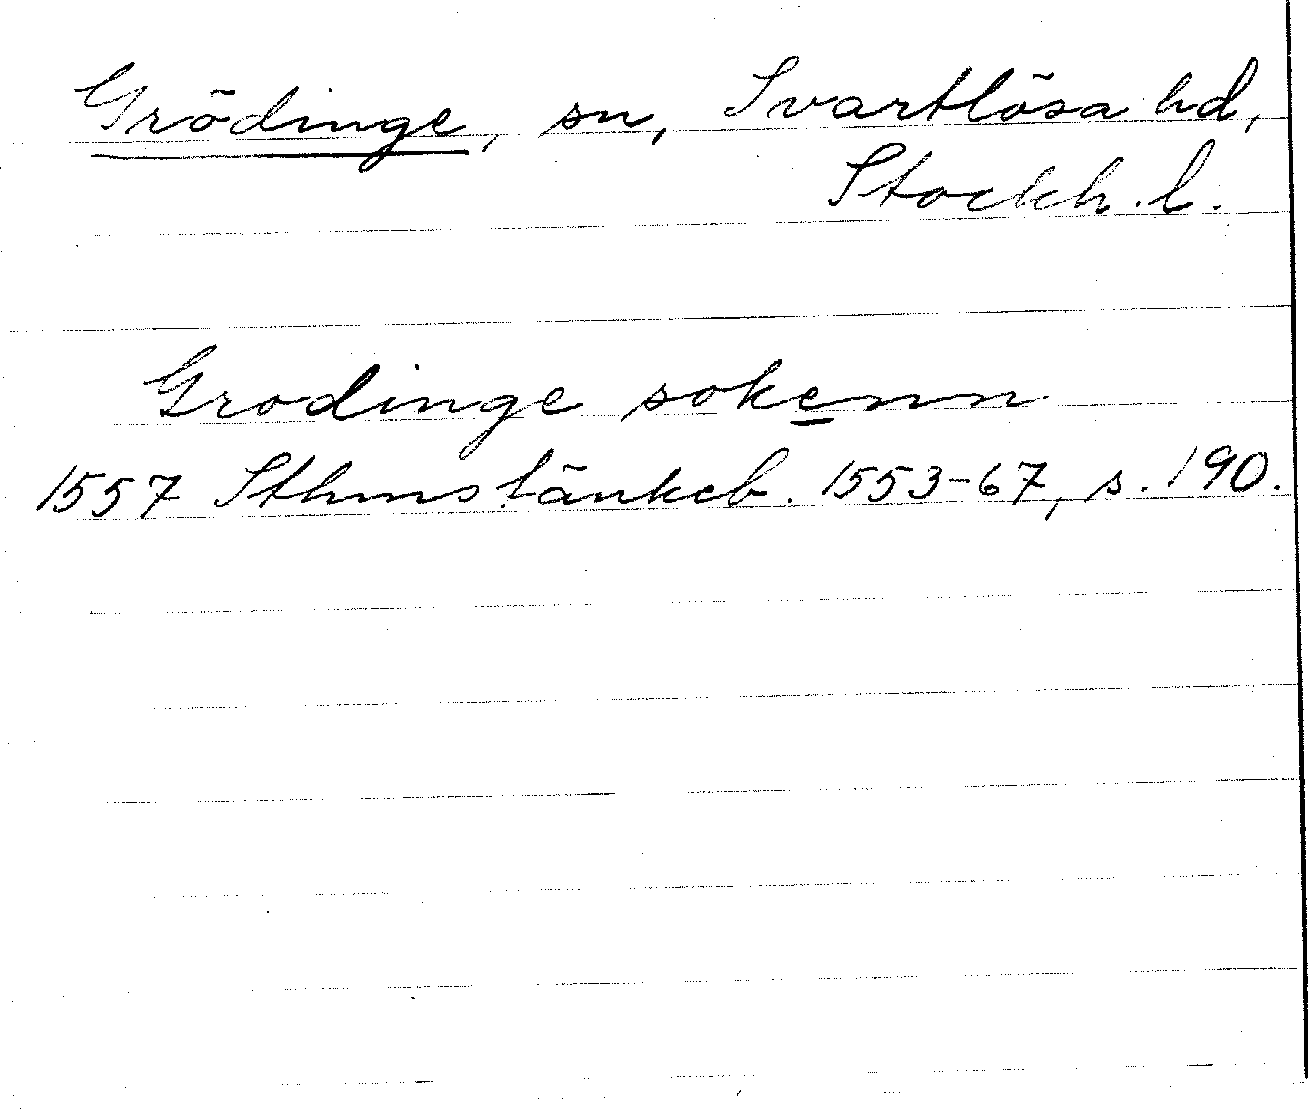 Grödinge, sn, Svartlösa hd,
Stockh. l.
Grodinge sokenn
1557 Sthms tänkeb. 1553-67, s. 190.